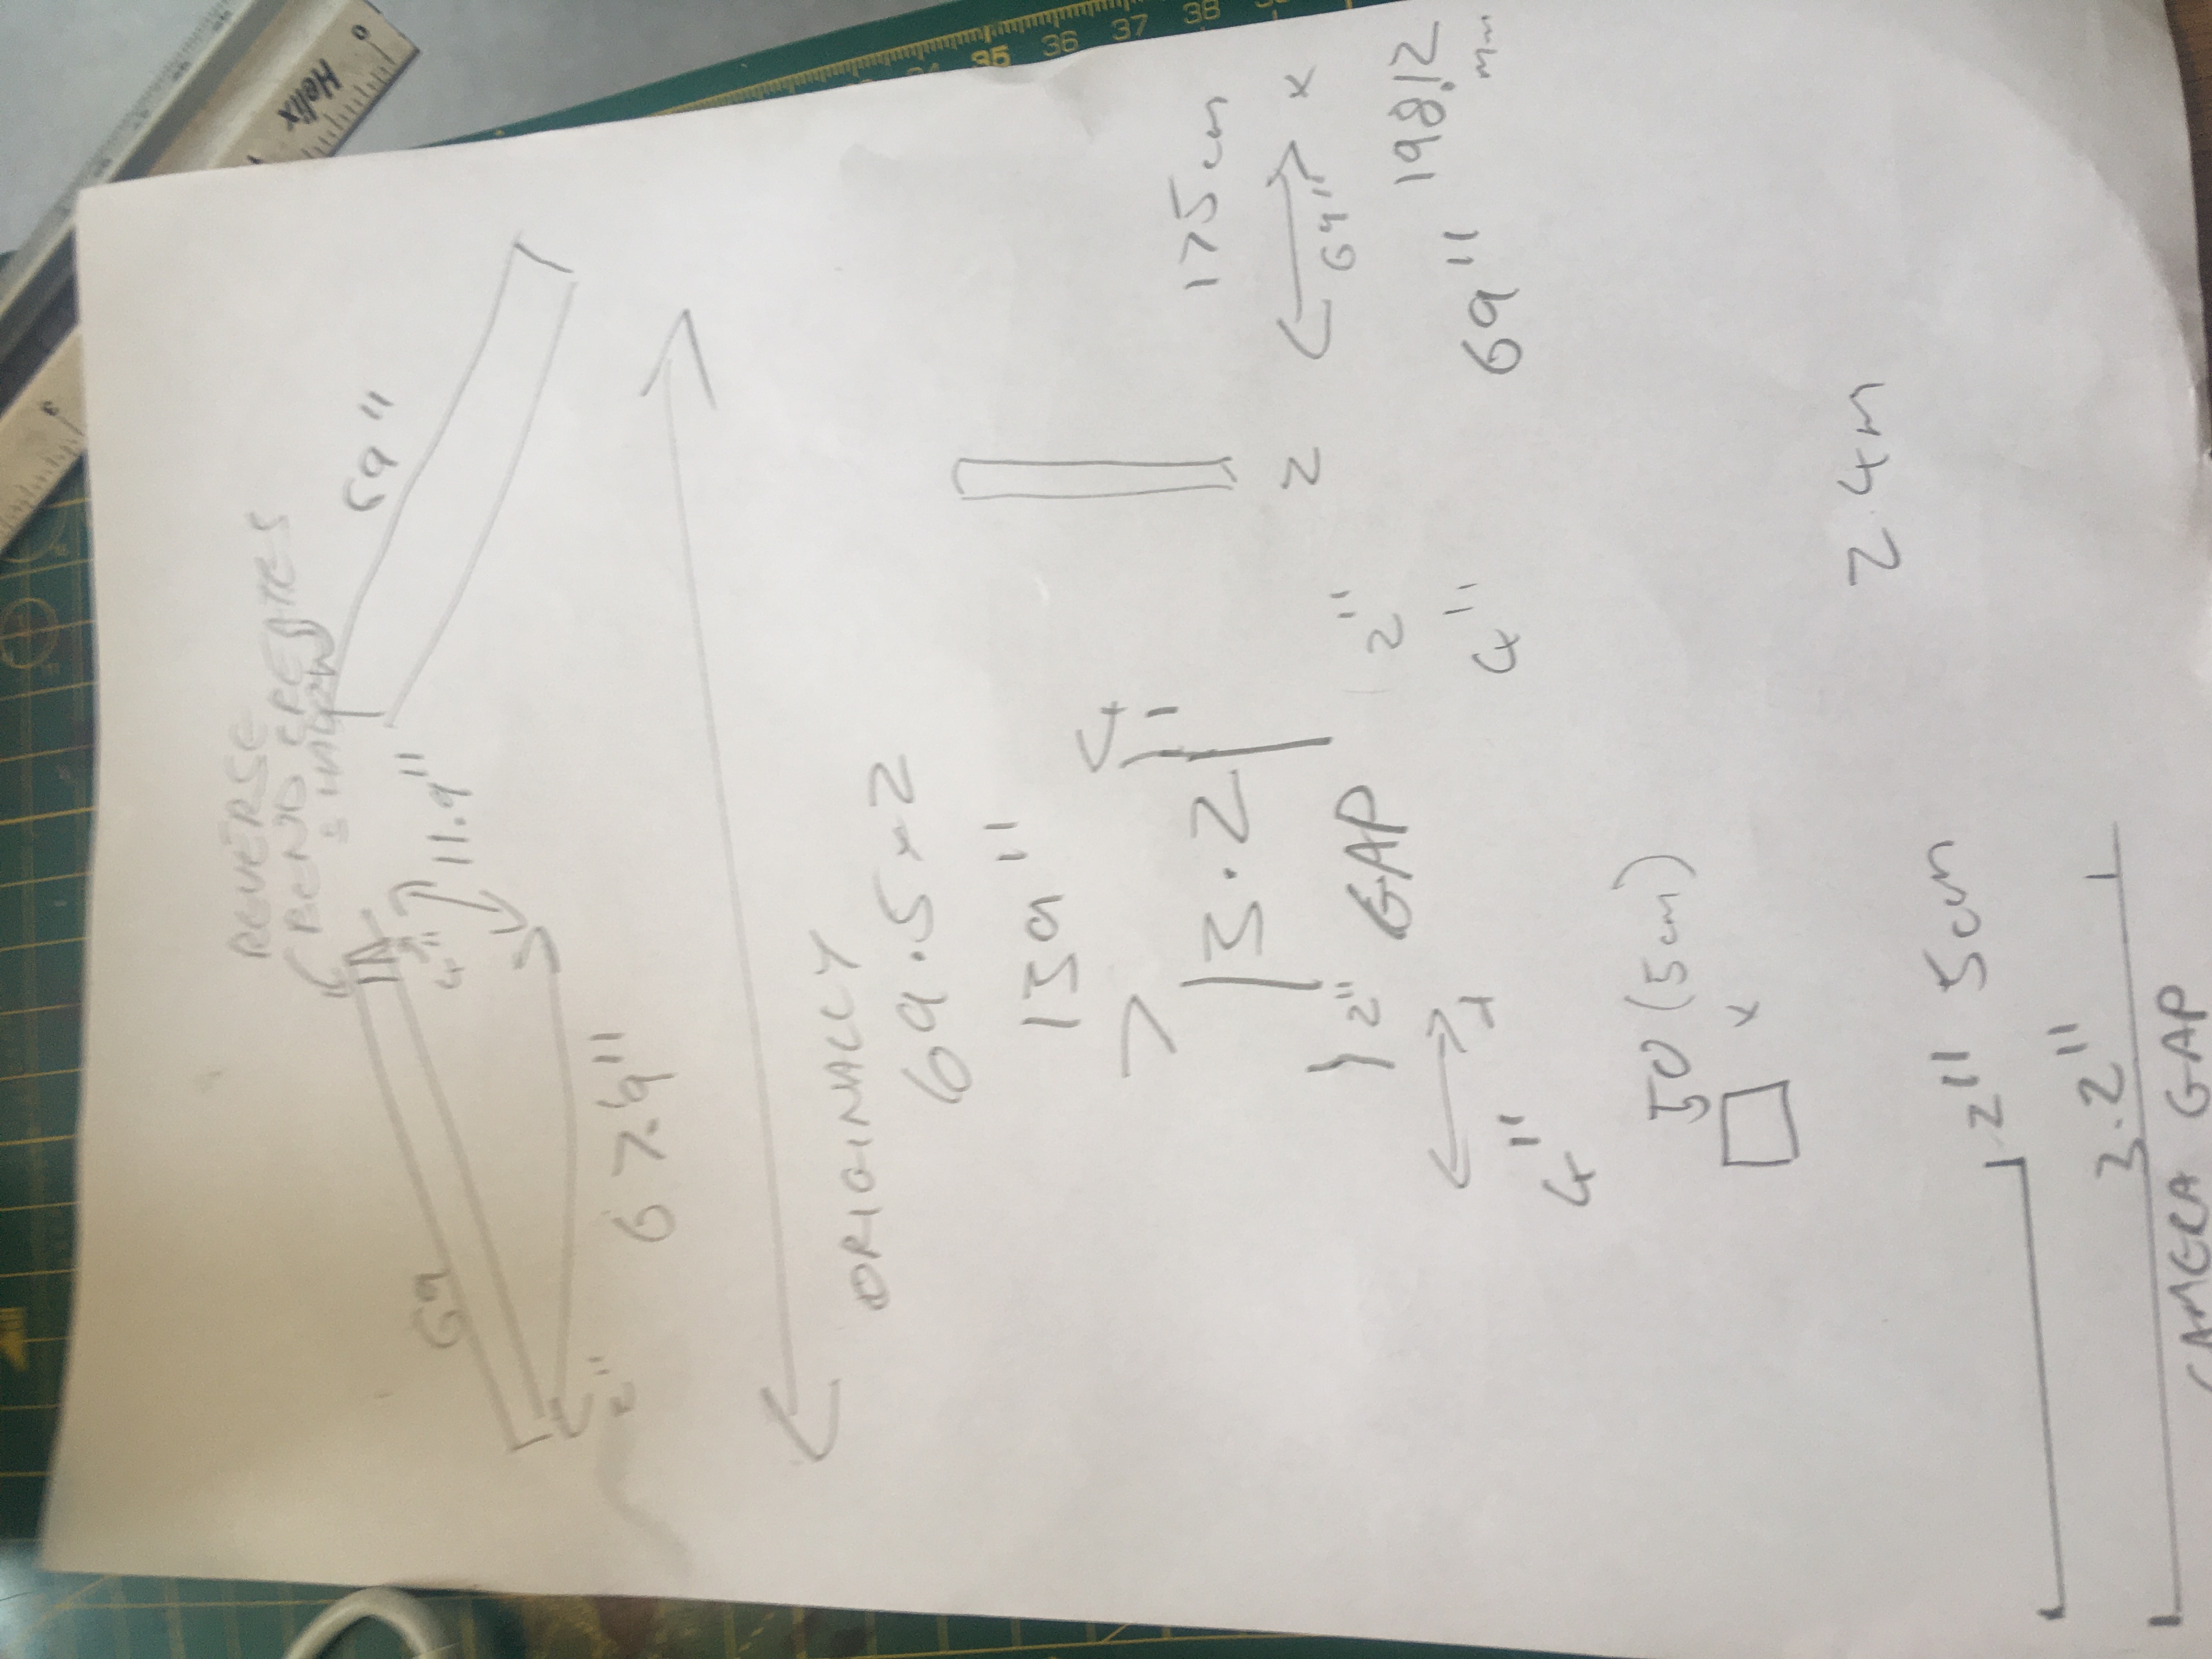 REVERSE
BEND CREATES
SHADOW
69
69"
4"
11.9"
2"
67.9"
ORIGINALLY
69.5 x 2
139"
3.2
175cm
2
x
69"
2"
GAP
2"
198.12
mm
4"
69"
4"
50 (5cm)
x
2.4m
2" 5cm
3.2"
CAMERA GAP
Helix
0
35
36
37
38